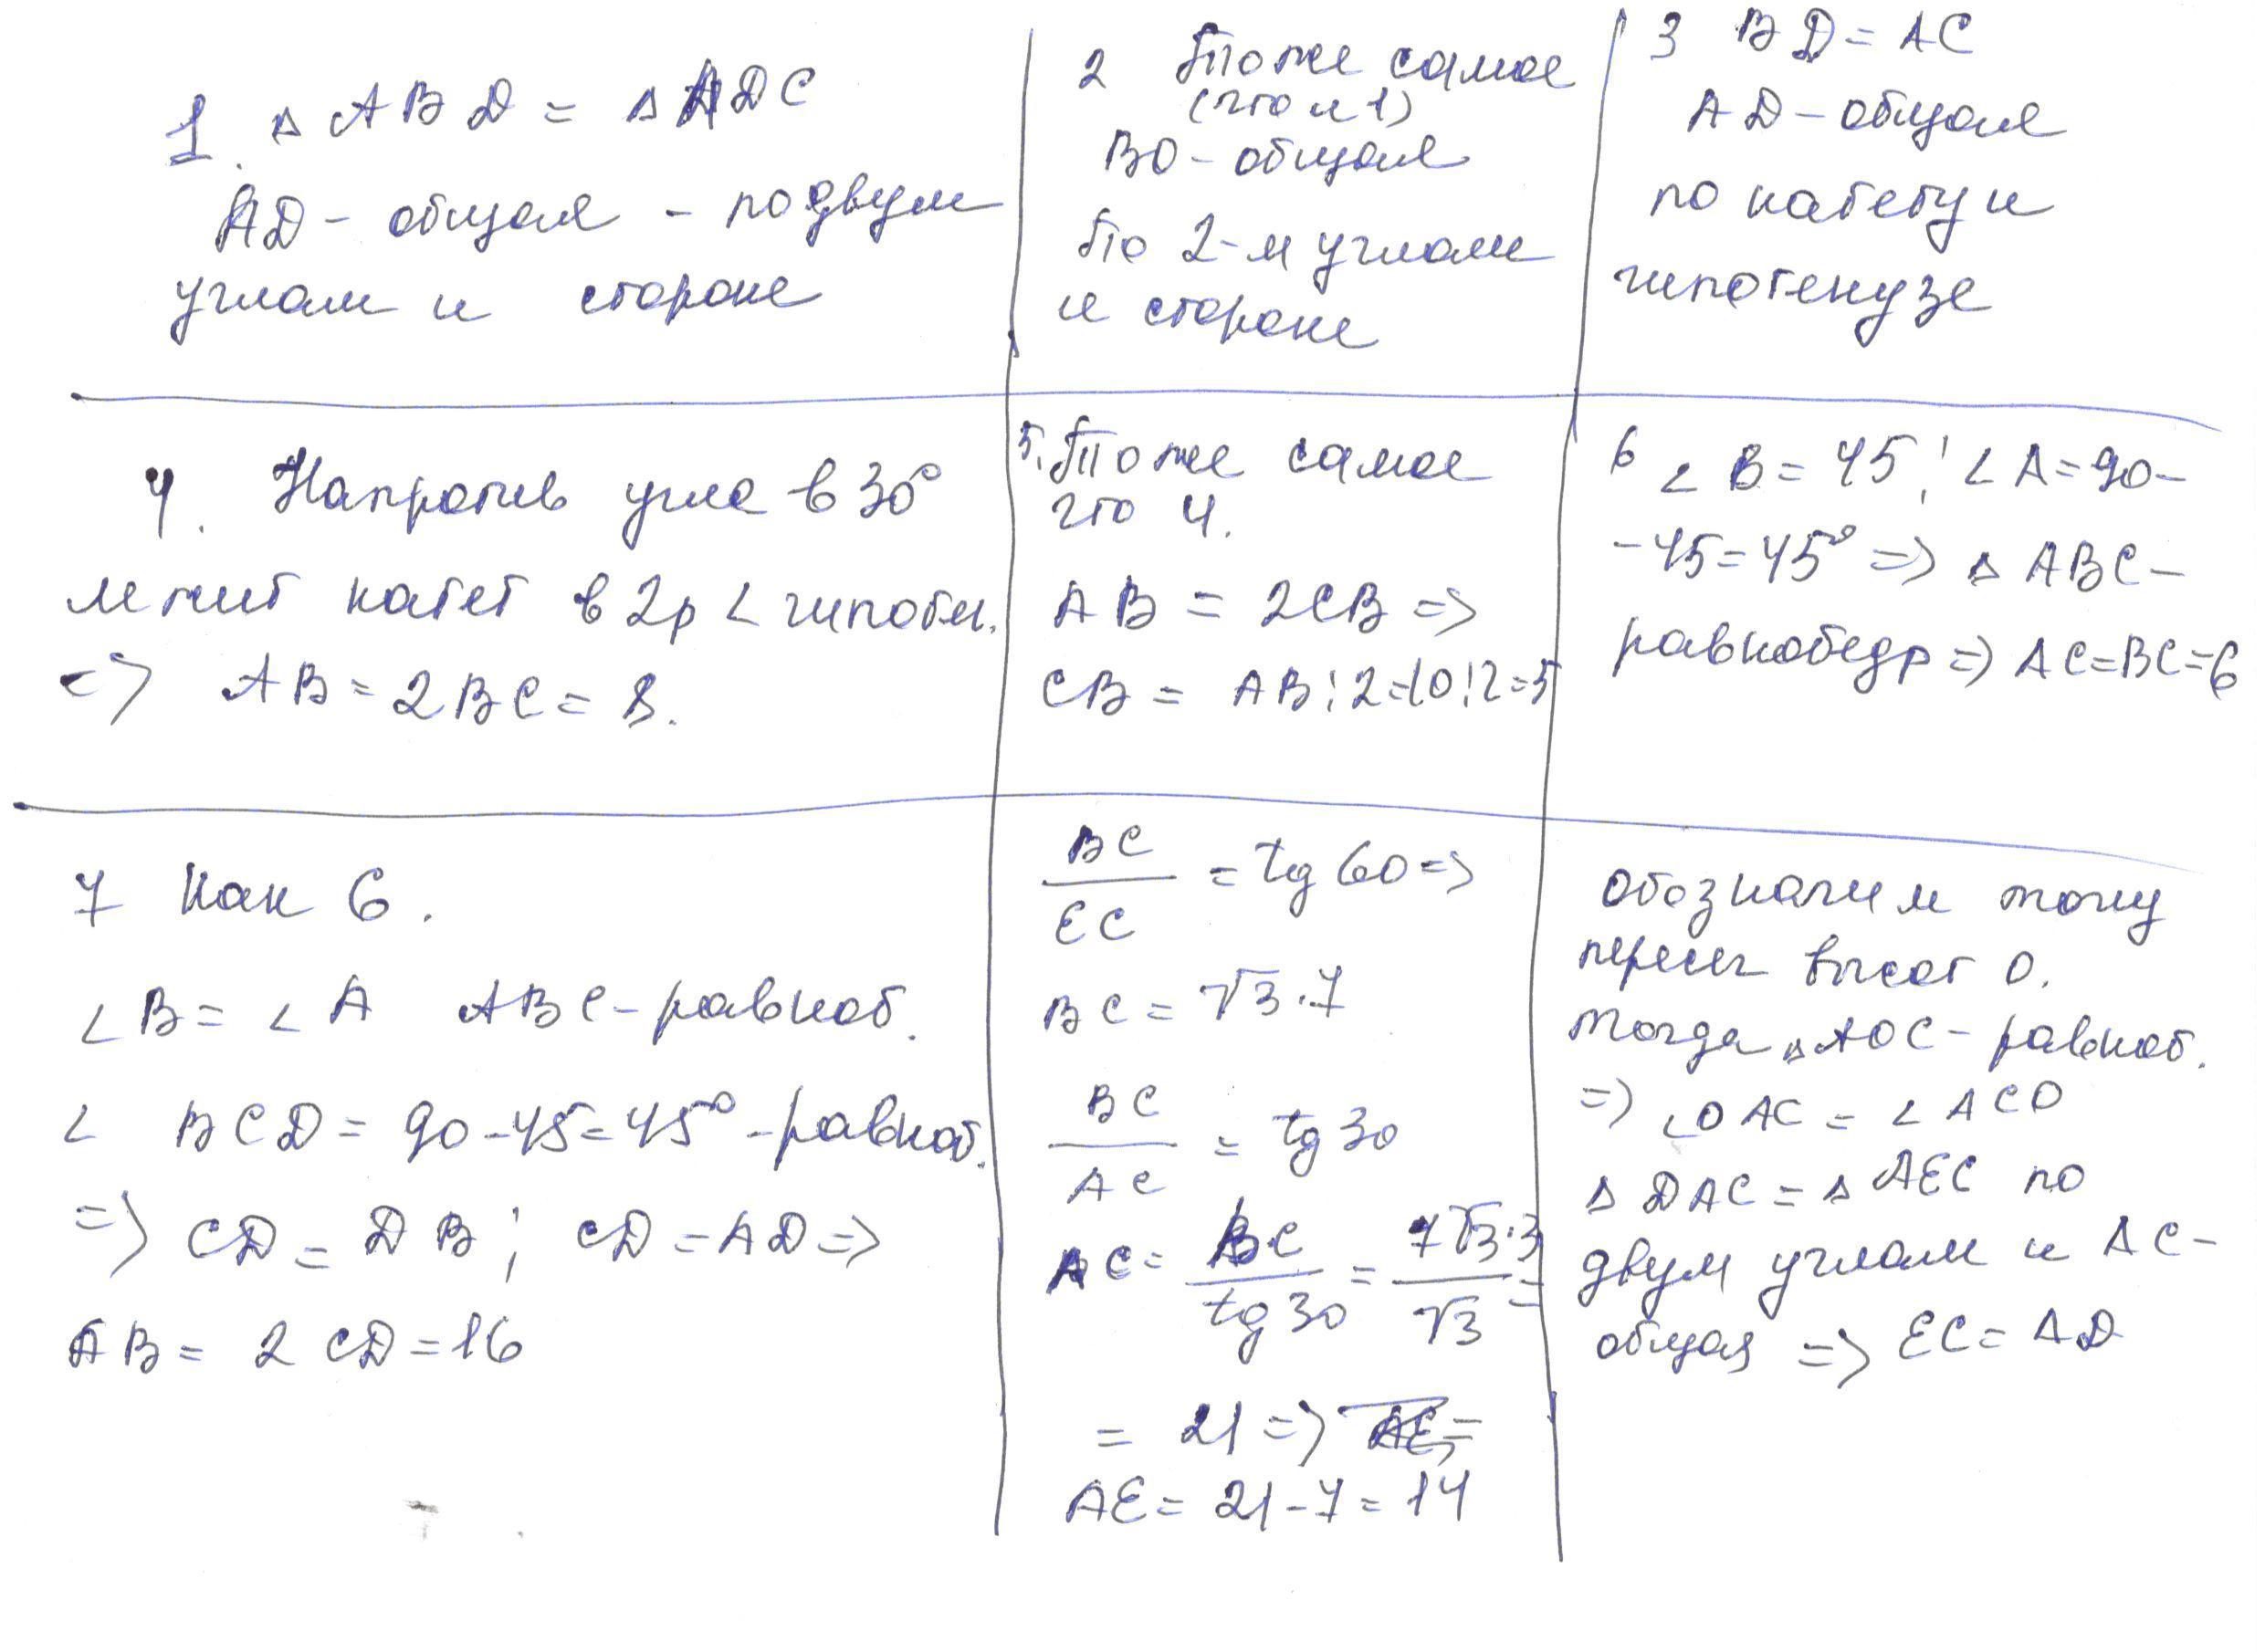 1. △ ABD = △ ADC
AD - общая - по двум
углам и стороне
2 То же самое
(что и 1)
BO - общая
По 2-м углам
и стороне
3 BD = AC
AD - общая
по катету и
гипотенузе
4. Напротив угла в 30°
лежит катет в 2р < гипотен.
=> AB = 2BC = 8.
5. То же самое
что 4.
AB = 2CB =>
CB = AB : 2 = 10 : 2 = 5
6 ∠B = 45; ∠A = 90 -
- 45 = 45° => △ ABC -
равнобедр => AC = BC = 6
7 Как 6.
∠B = ∠A ABC - равноб.
∠ BCD = 90 - 45 = 45° - равноб.
=> CD = DB; CD = AD =>
AB = 2 CD = 16
BC/EC = tg 60 =>
BC = √3 · 7
BC/AC = tg 30
AC = BC/tg 30 = 7√3·3/√3 =
= 21 =>
AE = 21 - 7 = 14
обозначим точку
пересеч высот O.
Тогда △ AOC - равноб.
=> ∠OAC = ∠ACO
△ DAC = △ AEC по
двум углам и AC -
общая => EC = AD